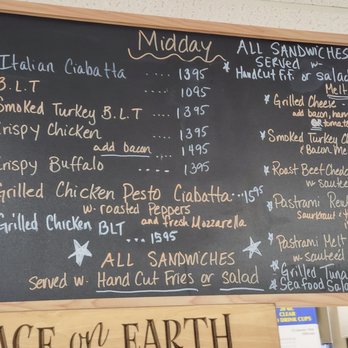 Midday
Italian Ciabatta .... 1395
B.L.T .... 1095
Smoked Turkey B.L.T .... 1395
Crispy Chicken .... 1395
add bacon .... 1495
Crispy Buffalo .... 1395
Grilled Chicken Pesto Ciabatta ...1595
w. roasted Peppers
and fresh Mozzarella
Grilled Chicken BLT ... 1595
ALL SANDWICHES
served w. Hand Cut Fries or salad
ALL SANDWICHES
SERVED w-
Hand Cut F.F. or Salad
Melt
Grilled Cheese
add bacon, ham
OR tomato
Smoked Turkey
& Bacon Me
Roast Beef Chedda
w- saute
Pastrami Reu
sauerkraut &
Pastrami Melt
w- sauteed
Grilled Tuna
Seafood Sala
ACE on EARTH
CLEAR
DRINK CUPS